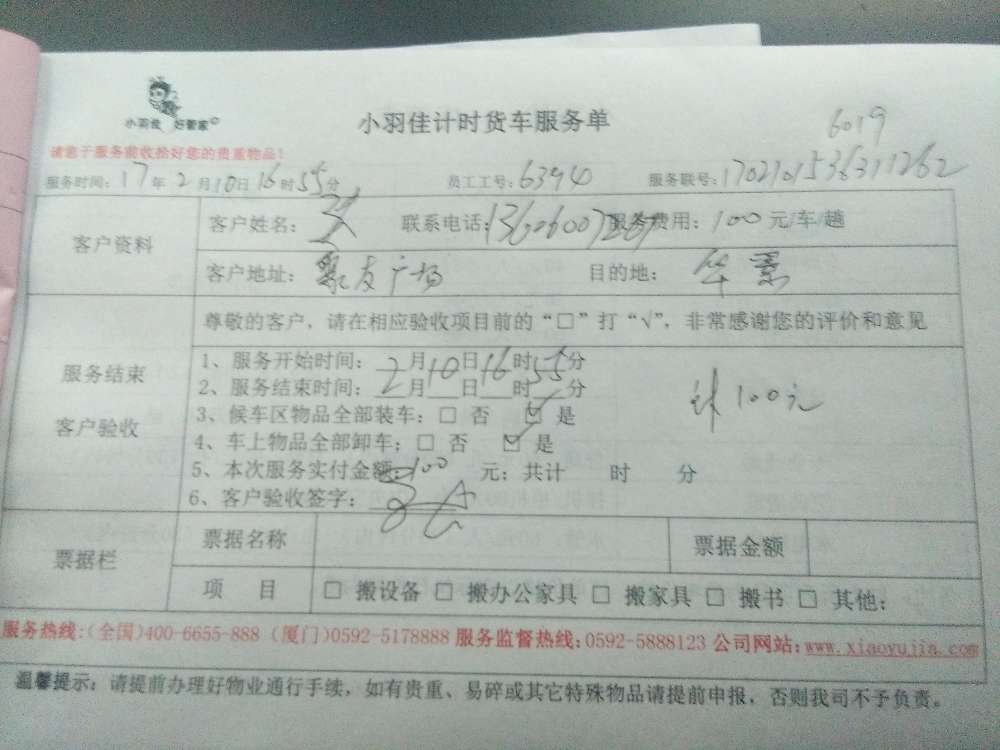 小羽佳 好管家
小羽佳计时货车服务单
6019
请您于服务前收拾好您的贵重物品!
服务时间: 17年2月10日16时55分 员工工号: 6394 服务联号:
客户资料
客户姓名: 联系电话: 服务费用: 100元/车/趟
客户地址: 聚友广场 目的地: 华景
服务结束
客户验收
尊敬的客户,请在相应验收项目前的“□”打“√”,非常感谢您的评价和意见
1、服务开始时间: 2月10日16时55分
2、服务结束时间: 2月 日 时 分
3、候车区物品全部装车: □ 否 ☑ 是
4、车上物品全部卸车: □ 否 ☑ 是
5、本次服务实付金额: 100 元; 共计 时 分
6、客户验收签字:
计100元
票据栏
票据名称 票据金额
项目 □ 搬设备 □ 搬办公家具 □ 搬家具 □ 搬书 □ 其他:
服务热线:(全国)400-6655-888 (厦门)0592-5178888 服务监督热线:0592-5888123 公司网站:www.xiaoyujia.com
温馨提示: 请提前办理好物业通行手续,如有贵重、易碎或其它特殊物品请提前申报,否则我司不予负责。